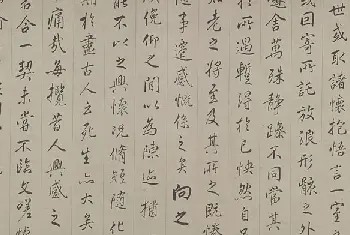 世或取諸懷抱悟言一室
或因寄所託放浪形骸之外
趣舍萬殊靜躁不同當其
於所遇暫得於己快然自
老之將至及其所之既惓
隨事遷感慨係之矣向之
俛仰之間以為陳迹猶
能不以之興懷況脩短隨化
期於盡古人云死生亦大矣
痛哉每攬昔人興感之
若合一契未嘗不臨文嗟